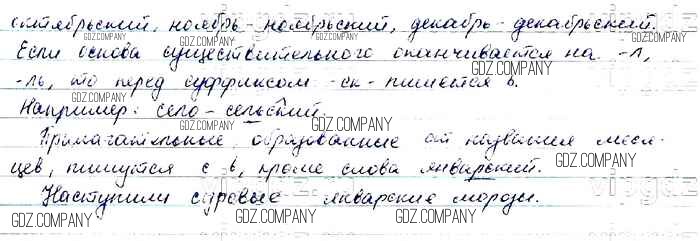 октябрьский, ноябрь - ноябрьский, декабрь - декабрьский.
Если основа существительного оканчивается на -л,
-ль, то перед суффиксом -ск- пишется ь.
Например: село - сельский.
Прилагательные, образованные от названия меся-
цев, пишутся с ь, кроме слова январский.
Наступили суровые январские морозы.
GDZ.COMPANY
GDZ.COMPANY
GDZ.COMPANY
GDZ.COMPANY
GDZ.COMPANY
GDZ.COMPANY
GDZ.COMPANY
GDZ.COMPANY
GDZ.COMPANY
GDZ.COMPANY
GDZ.COMPANY